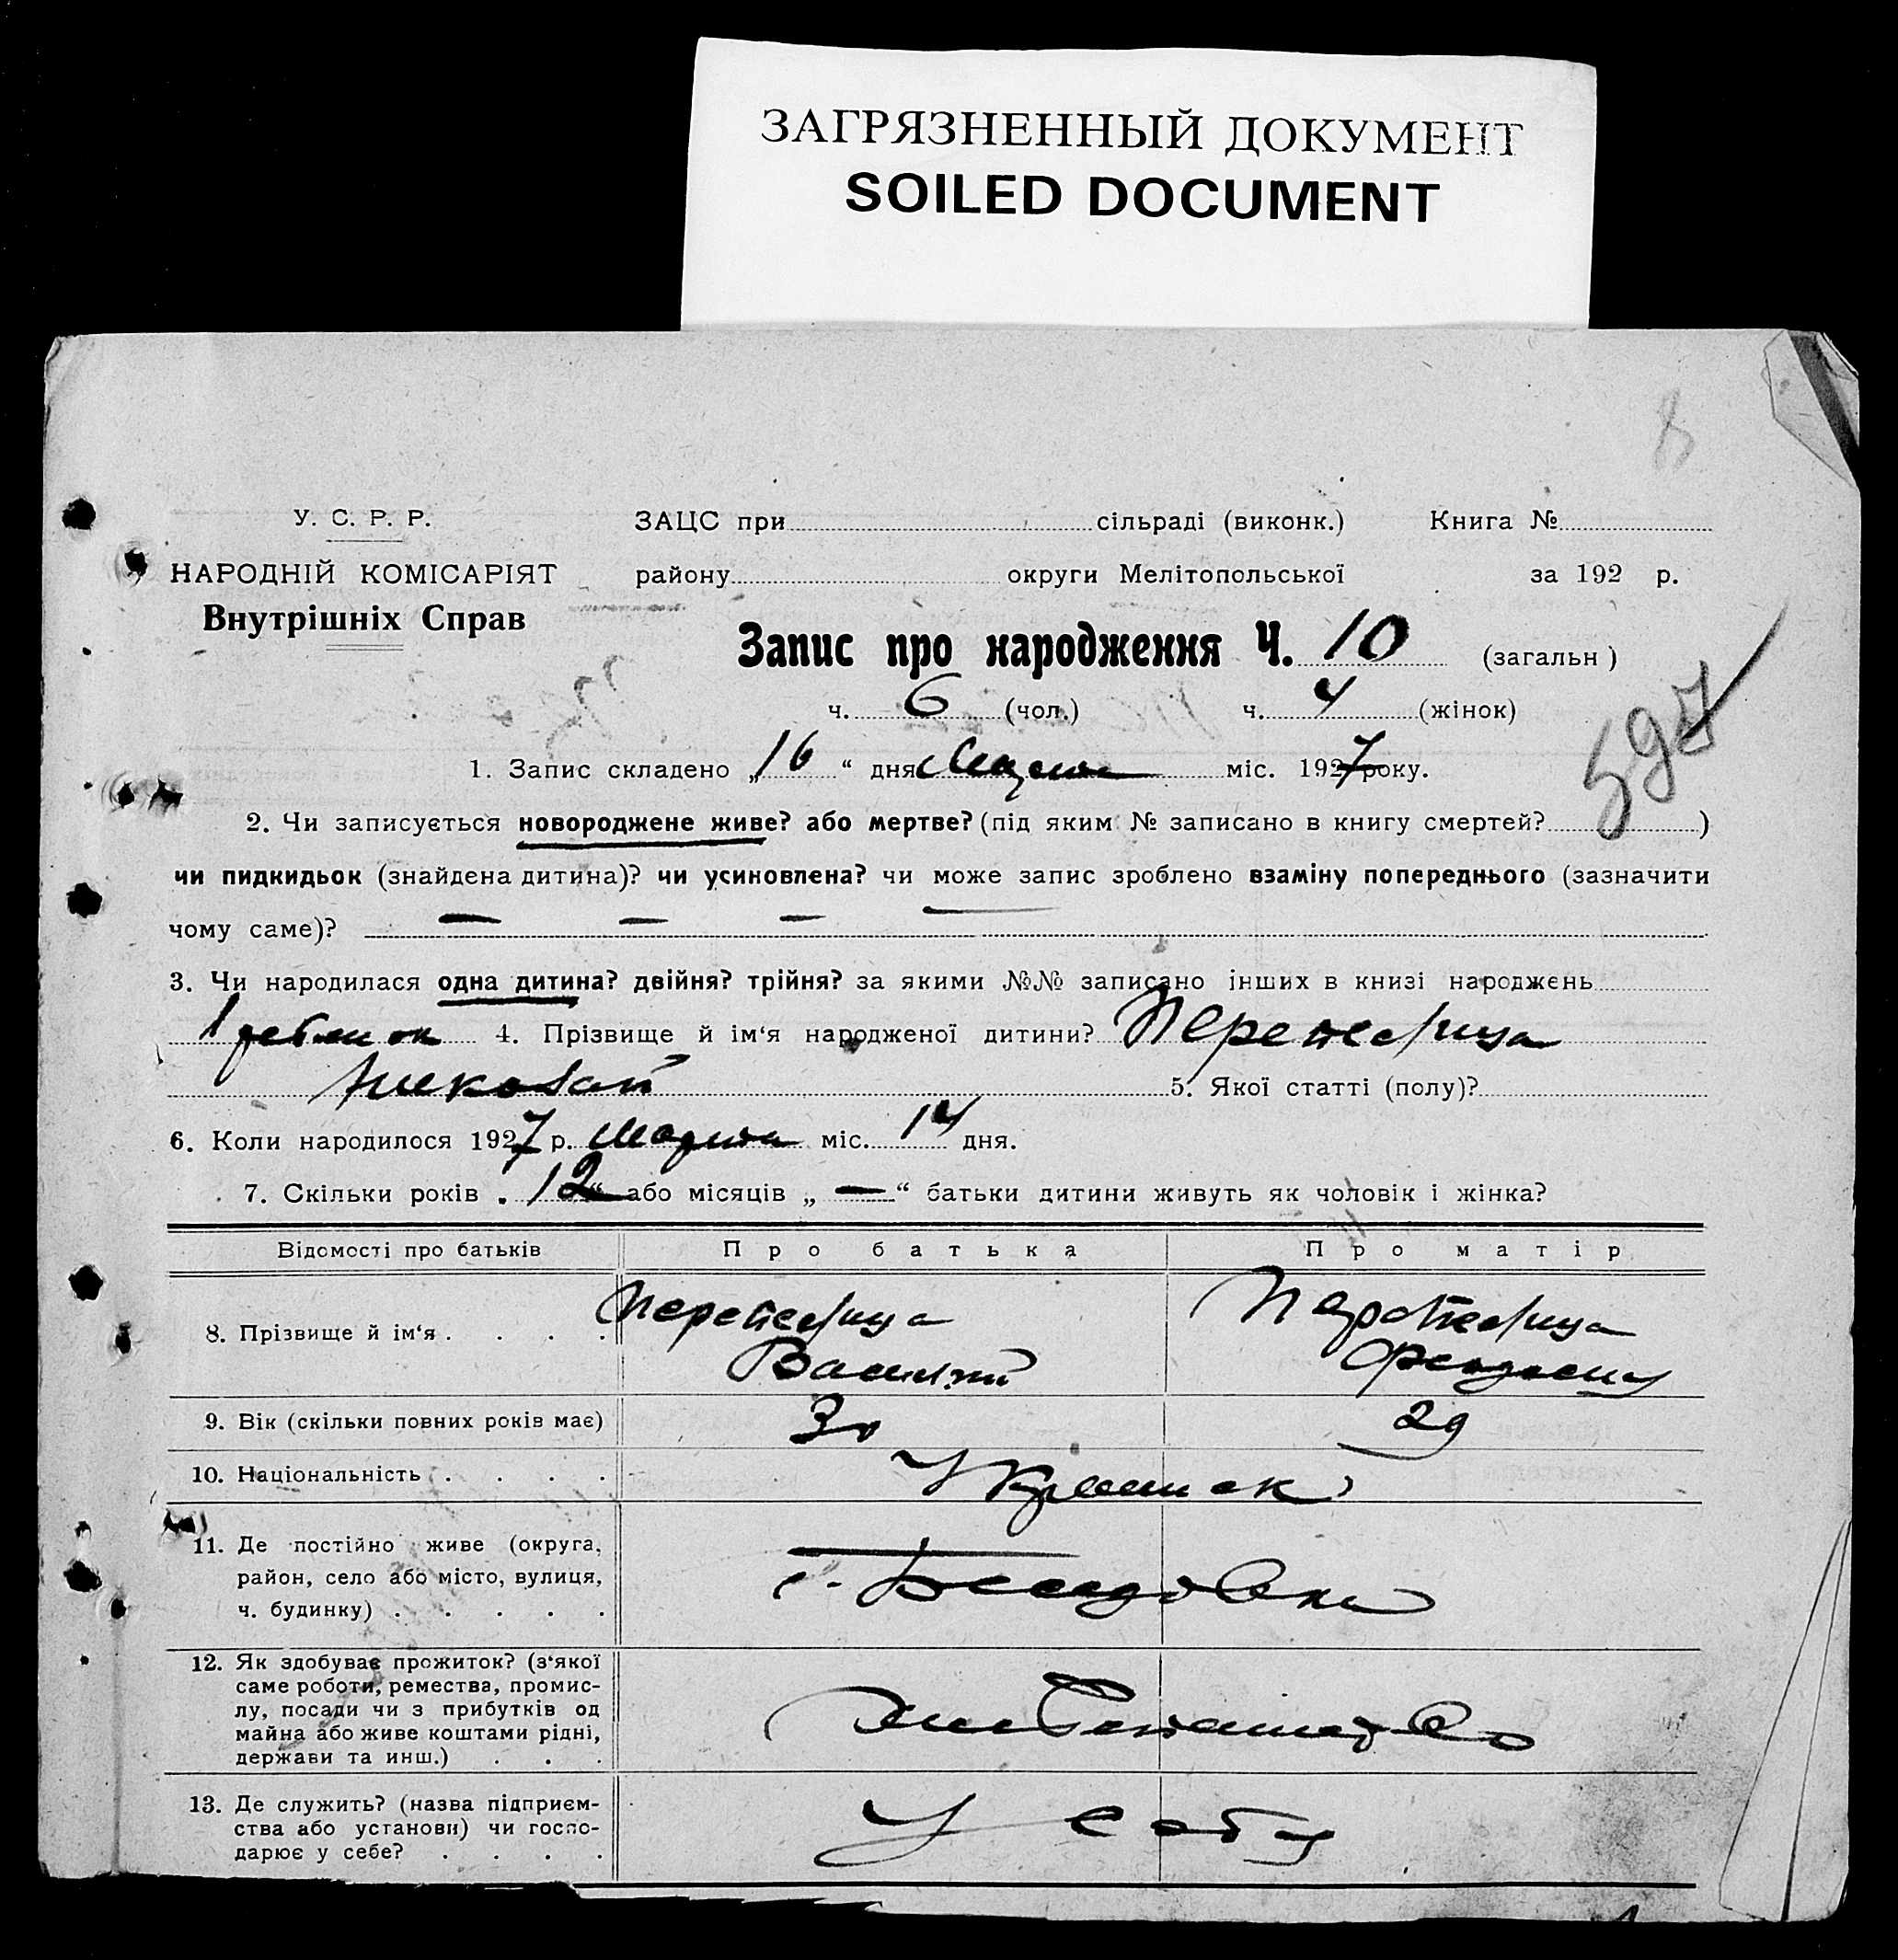 ЗАГРЯЗНЕННЫЙ ДОКУМЕНТ
SOILED DOCUMENT
8
У. С. Р. Р.
ЗАЦС при сільраді (виконк.) Книга №
НАРОДНІЙ КОМІСАРІЯТ
району округи Мелітопольської за 192 р.
Внутрішніх Справ
Запис про народження Ч. 10 (загальн)
ч. 6 (чол.) ч. 4 (жінок)
597
1. Запис складено „16“ дня Марта міс. 1927 року.
2. Чи записується новороджене живе? або мертве? (під яким № записано в книгу смертей? )
чи пидкидьок (знайдена дитина)? чи усиновлена? чи може запис зроблено взаміну попереднього (зазначити
чому саме)? — — —
3. Чи народилася одна дитина? двійня? трійня? за якими №№ записано інших в книзі народжень
1 ребенок 4. Прізвище й ім‘я народженої дитини? Перепелица
Николай 5. Якої статті (полу)?
6. Коли народилося 1927 р. Марта міс. 14 дня.
7. Скільки років „12“ або місяців „—“ батьки дитини живуть як чоловік і жінка?
Відомості про батьків Про батька Про матір
8. Прізвище й ім‘я . . . . Перепелица Василий Перепелица Феодосия
9. Вік (скільки повних років має) 30 29
10. Національність . . . . Украинск
11. Де постійно живе (округа,
район, село або місто, вулиця,
ч. будинку) . . . . .
с.
12. Як здобуває прожиток? (з‘якої
саме роботи, ремества, промис-
лу, посади чи з прибутків од
майна або живе коштами рідні,
держави та инш.) . . .
13. Де служить? (назва підприєм-
ства або установи) чи госпо-
дарює у себе? . . . .
У себе